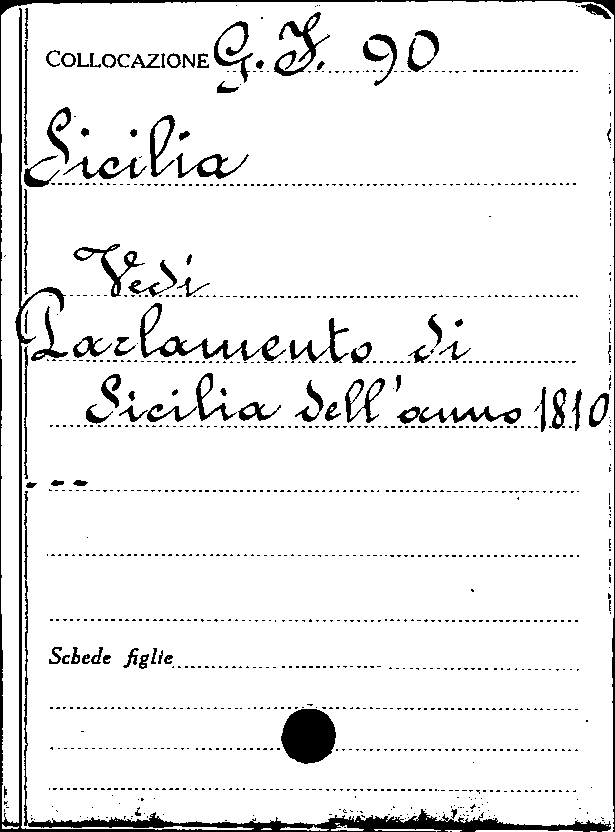 COLLOCAZIONE G. F. 90
Sicilia
Vedi
Parlamento di
Sicilia dell'anno 1810
---
Schede figlie